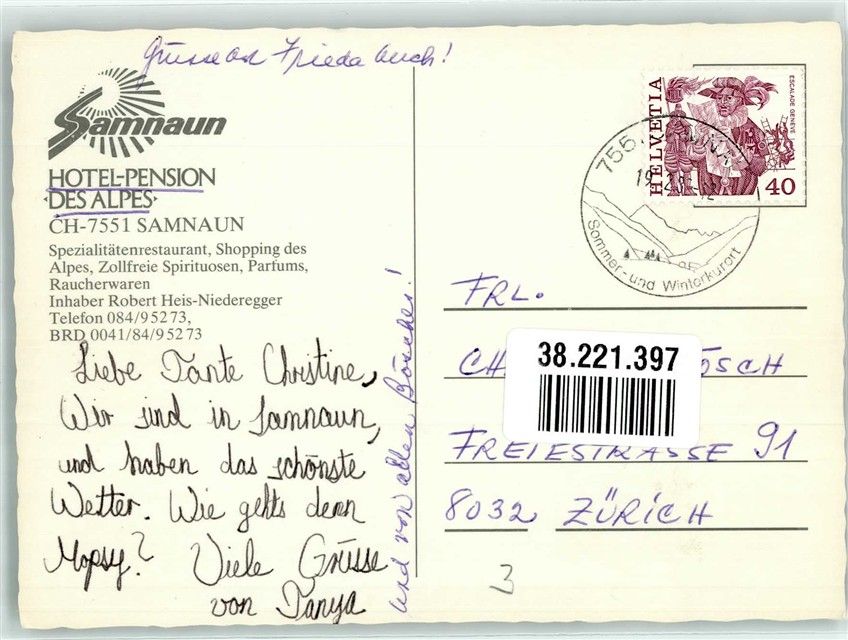 Grüsse an Frieda auch!
Samnaun
HOTEL-PENSION
DES ALPES
CH-7551 SAMNAUN
Spezialitätenrestaurant, Shopping des
Alpes, Zollfreie Spirituosen, Parfums,
Raucherwaren
Inhaber Robert Heis-Niederegger
Telefon 084/95273,
BRD 0041/84/95273
Liebe Tante Christine,
Wir sind in Samnaun,
und haben das schönste
Wetter. Wie gehts denn
Mopsy? Viele Grüsse
von Tanya
und von allen Böschs!
HELVETIA
ESCALADE GENÈVE
40
755
Sommer- und Winterkurort
FRL.
CH ÖSCH
38.221.397
FREIESTRASSE 91
8032 ZÜRICH
3